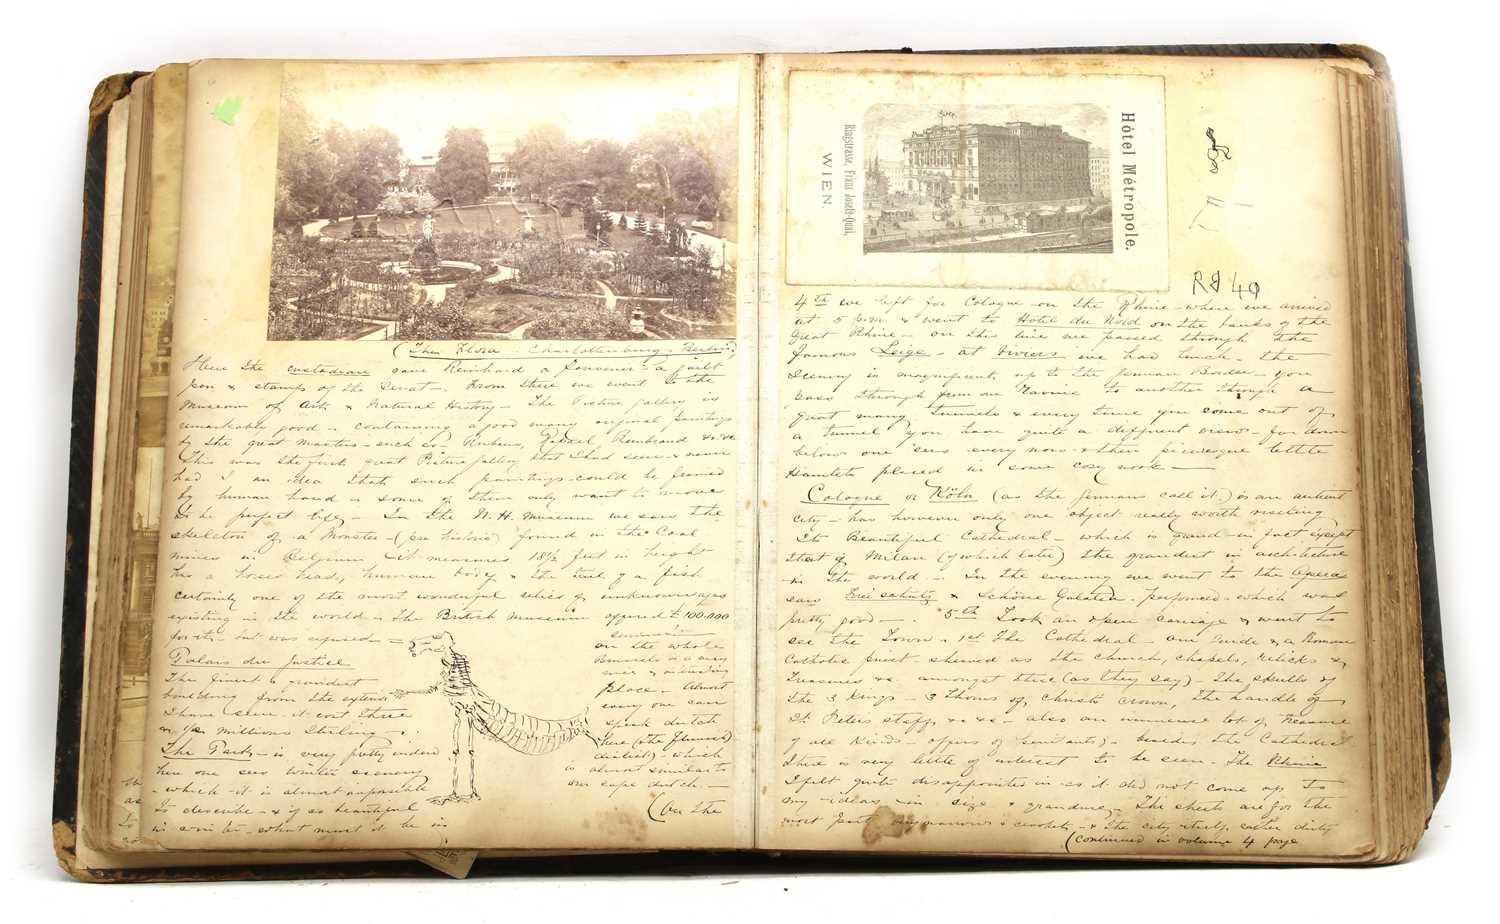 (The Flora - Charlottenburg - Berlin)
Here the custodian gave Reinhard a souvenir - a quill
pen & stamps of the Senat - From there we went to the
Museum of Art & Natural History - The Picture gallery is
remarkably good - containing a good many original paintings
by the great Masters - such as - Rubens, Rembrand &c. &c.
This was the first great Picture gallery that I had seen & never
had I an idea that such paintings could be framed
by human hand - some of them only want to move
to be perfect life - In the N. H. Museum we saw the
skeleton of a Monster - (pre historic) found in the Coal
mines in Belgium - it measures 18½ feet in height
has a horses head, human body & the tail of a fish
certainly one of the most wonderful relics of unknown ages
existing in the world - The British Museum offered £100.000
for it - but was refused -
Palais du Justice
The finest & grandest
building from the exterior
I have seen - it cost three
& millions Sterling.
The Park - is very pretty indeed
here one sees Winter scenery
- which it is almost impossible
to describe - & if so beautiful
in winter - what must it be in
summer
on the whole
Brussels is a very
nice &
place - Almost
every one can
speak dutch
here (the Flemish
district) - which
is almost similar to
our cape dutch. -
(On the
Hôtel Métropole.
Ringstrasse, Franz Josefs-Quai,
WIEN.
R 40
4th we left for Cologne on the Rhine where we arrived
at 5 p.m. & went to Hotel du Nord on the banks of the
Great Rhine - on this line we passed through the
famous Leige - at Viviers we had lunch - the
scenery is magnificent, up to the German Border - you
pass through from one Ravine to another through a
great many tunnels & every time you come out of
a tunnel you have quite a different view - far down
below one sees every now & then picturesque little
Hamlets placed in some cosy nook -
Cologne or Köln (as the Germans call it) is an antient
city - has however only one object really worth visiting
Its Beautiful Cathedral - which is grand - in fact except
that of Milan (of which later) the grandest in architecture
in the world - In the evening we went to the Opera
saw Freischutz & Schöne Galatea - performed - which was
pretty good - 5th Took an open carriage & went to
see the Town - 1st The Cathedral - our Guide & a Roman
Catholic priest - shewed us the church, chapels, relicks &
Treasures & amongst these (as they say) - The skulls of
the 3 Kings - 3 Thorns of Christs crown, The handle of
St. Peters staff, & & & - also an immense lot of Treasure
of all Kinds - - besides the Cathedral
there is very little of interest to be seen - The Rhine
I felt quite disappointed in as it did not come up to
my ideas in size & grandeur - The streets are for the
most part very narrow & crooked - & the city itself rather dirty
(continued in volume 4 page